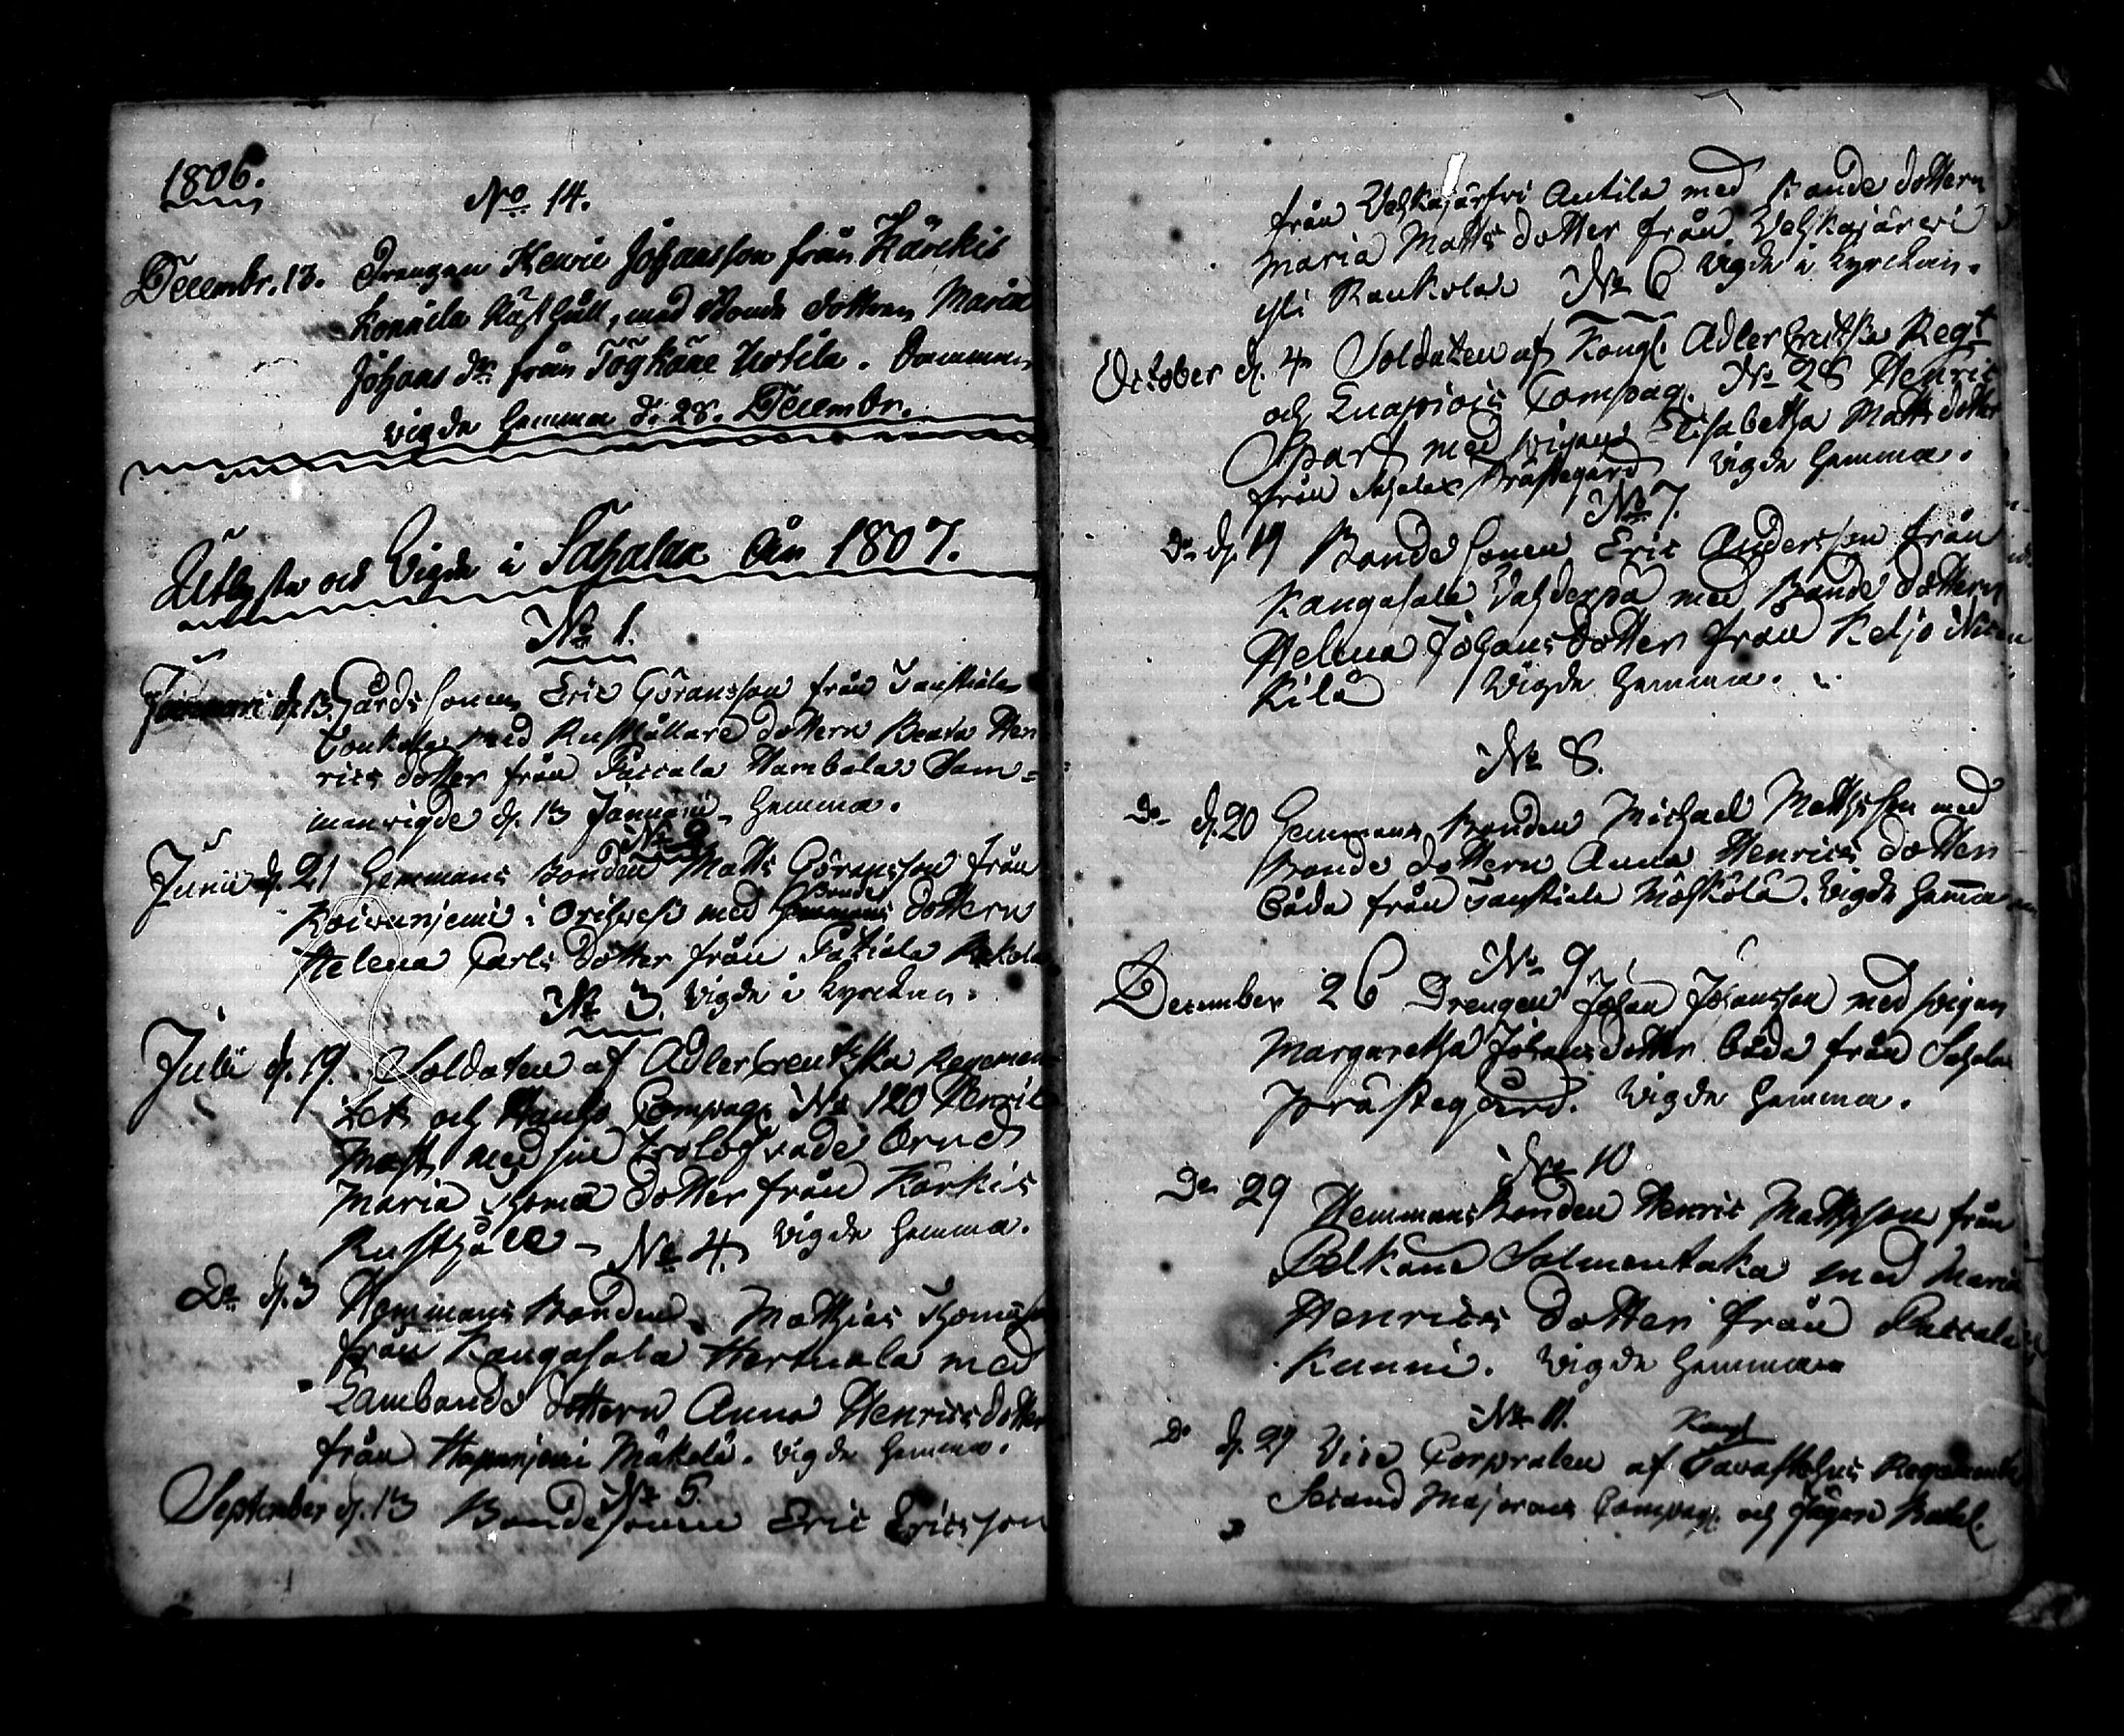 1806.
No 14.
Decembr. 13. Drengen Henric Johansson från Kärckis
Konnila Rusthåll, med Bonde dottren Maria
Johans dr från Tögkäne Uotila. Samman
vigde hemma d. 28. Decembr.
Utlysta och Vigde i Sahalax åhr 1807.
No 1.
Januari d. 13. Gårds sonen Eric Göransson från Tanskala
med Rusthållare dottern Beata Hen
rics dotter från Paccala Hambala Sam-
manvigde d. 13 Januari hemma.
No 2
Junii d. 21 Hemmans Bonden Matts Göransson från
Koivuniemi i Orihvesi med Bonde dottern
Helena Carls dotter från Pakkala
No 3. Vigde i kyrckan.
Julii d. 19. Soldaten af Adlercreutzska Regemen
tets och Hauho Compag. No 120 Henric
Mast med sin trolofvade Brud
Maria Thoma dotter från Kärkis
Rusthåll - No 4. Vigde hemma.
Do d. 3 Hemmans Bonden Matthias Thomasson
från Kangasala Hertuala med
Lambonde dottern Anna Henrics dotter
från Haapaniemi Mäkelä. Vigde hemma.
No 5.
September d. 13 Bonde sonen Eric Ericsson
från Vehkajärfvi Antila med Bonde dottern
Maria Matts dotter från Vehkajärvi
Yli Raukola No 6 Vigde i kyrckan.
October d. 4 Soldaten af Kongl. Adlercreutzska Regt
och Compag. No 28 Henric
Sparf med pigan Elisabetha Matts dotter
från Sahalax Prästegård Vigde hemma.
No 7.
Do d. 19 Bonde sonen Eric Andersson från
Kangasala med Bonde dottern
Helena Johans dotter från Keljo
kilä Vigde hemma.
No 8.
Do d. 20 Hemmans Bonden Michael Mathsson med
Bonde dottern Anna Henrics dotter
båda från Tanskala Vigde hemma
No 9
December 26 Drengen Johan Johansson med pigan
Margaretha Johans dotter båda från Sahalax
prästegård. Vigde hemma.
No 10
Do 29 Hemmans Bonden Henric Mathsson från
Pelkäne Salmentaka med Maria
Henrics dotter från Paccala
Kunni. Vigde hemma
No 11.
Do d. 29 Vice Corporalen af Kongl Tavastehus Regemente
Second Majorens Compag. och Jägare Batal.